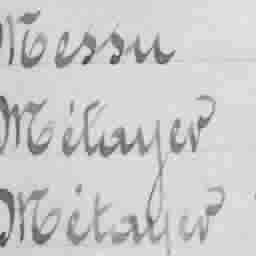 Messu
Métayer
Métayer